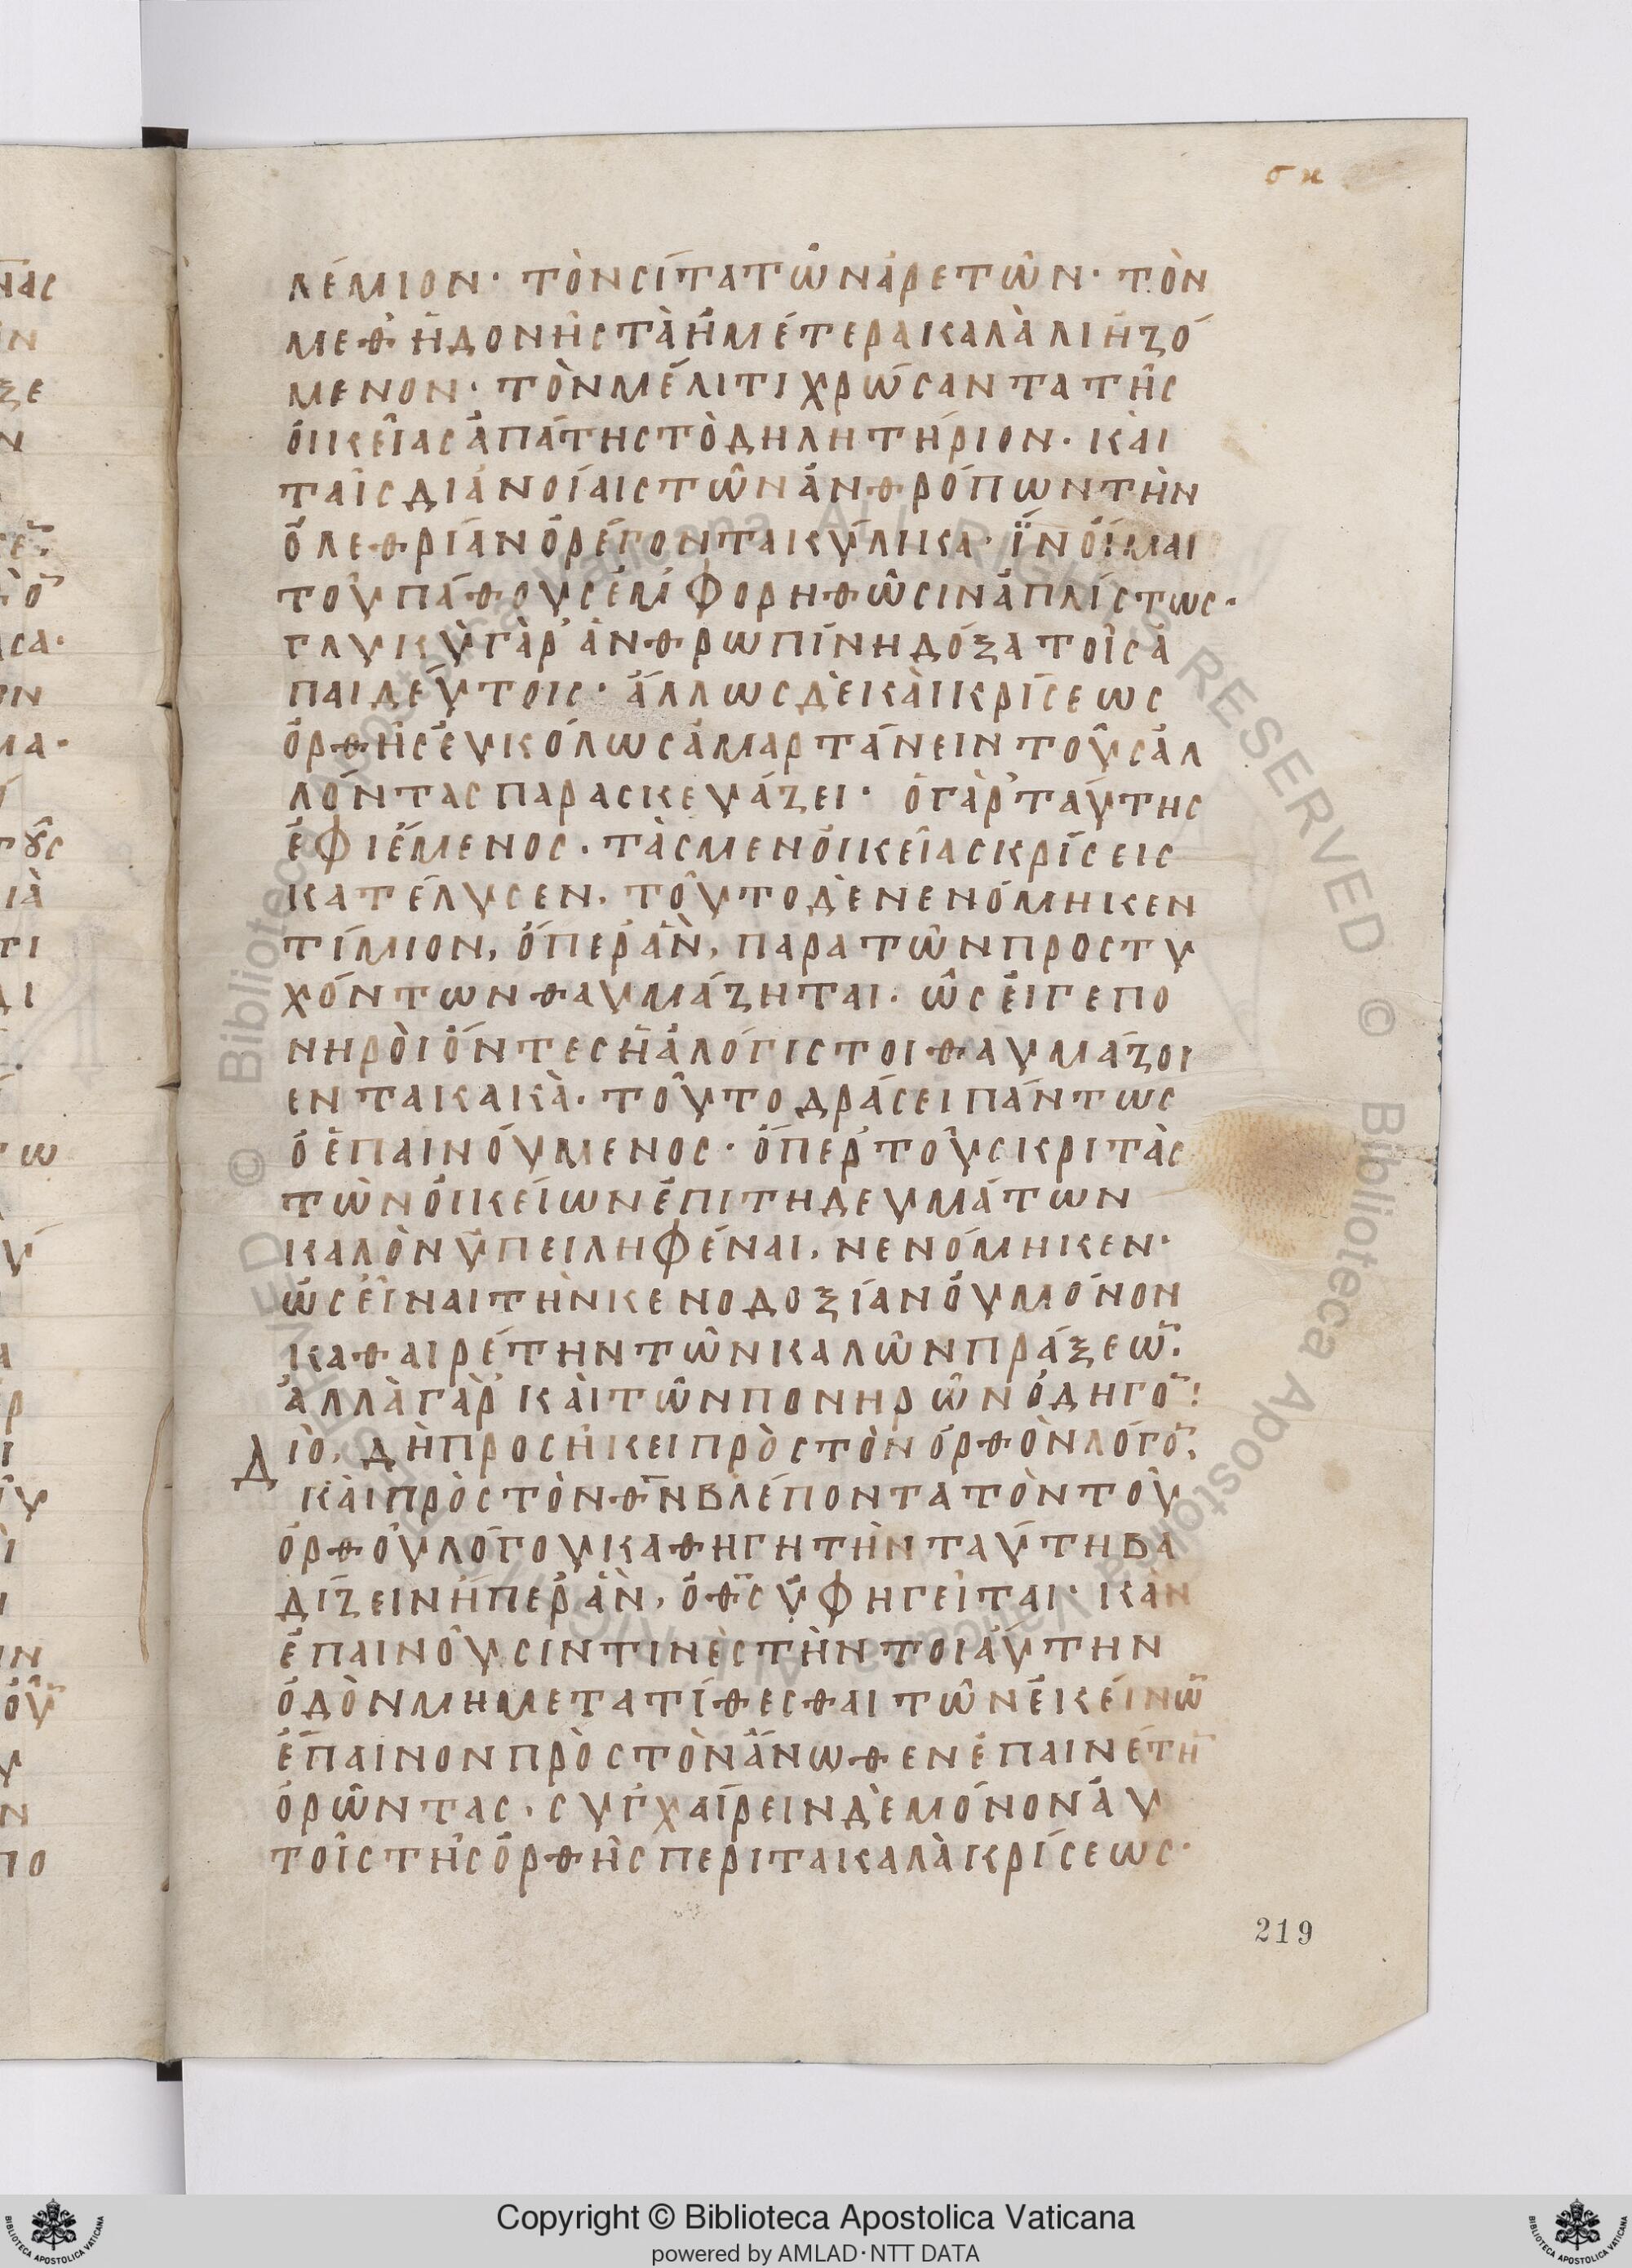 σκ
λέμιον· τὸν σίτα τῶν ἀρετῶν· τὸν
μεθ ἡδονῆς τὰ ἡμέτερα καλὰ ληιζό
μενον· τὸν μέλιτι χρώσαντα τῆς
ὀικείας ἀπάτης τὸ δηλητήριον· κὰι
ταῖς διανοίαις τῶν ἀνθρόπων τὴν
ὀλεθρίαν ὀρέγοντα κύλικα· ἵν ὀίμαι
τοὺ πάθους ἐμφορηθῶσιν ἀπλίστως·
γλυκὺ γὰρ ἀνθρωπίνη δόξα τοῖς ἀ
παιδεύτοις· ἄλλως δὲ κὰι κρίσεως
ὀρθῆς ἐυκόλως ἁμαρτάνειν τοὺς ἁλ
λόντας παρασκευάζει· ὁ γὰρ ταύτης
ἐφιέμενος· τὰς μεν ὀικείας κρίσεις
κατέλυσεν, τοῦτο δὲ νενόμηκεν
τίμιον, ὅπερ ἂν, παρα τῶν προστυ
χόντων θαυμάζηται· ὡς ἐι γε πο
νηρὸι ὄντες ἢ ἀλόγιστοι θαυμάζοι
εν τα κακὰ· τοῦτο δράσει πάντως
ὁ ἐπαινόυμενος· ὅπερ τοὺς κριτὰς
τὼν ὀικείων ἐπιτηδευμάτων
καλὸν ὑπειληφέναι, νενόμηκεν·
ὡς εἶναι τὴν κενοδοξίαν ὀυ μόνον
καθαιρέτην τῶν καλῶν πράξεω̄·
ἀλλὰ γὰρ κὰι τῶν πονηρῶν ὁδηγο̄·
Διὸ, δὴ προσήκει πρὸς τὸν ὀρθὸν λόγο̄·
κὰι πρὸς τὸν θ̄ν̄ βλέποντα τὸν τοὺ
ὀρθοὺ λόγου καθηγητὴν ταύτη βα
δίζειν ἧπερ ἂν, ὁ θ̄ς̄ ὑφηγεῖται· κἂν
ἐπαινοῦσιν τινὲς τὴν τοιἀυτην
ὁδὸν μη μετατίθεσθαι τῶν ἐκείνω̄
ἔπαινον πρὸς τὸν ἄνωθεν ἐπαινέτη̄
ὁρῶντας, συγχαίρειν δὲ μόνον ἀυ
τοῖς τῆς ὀρθῆς περι τα καλὰ κρίσεως·
219
Copyright © Biblioteca Apostolica Vaticana
powered by AMLAD·NTT DATA